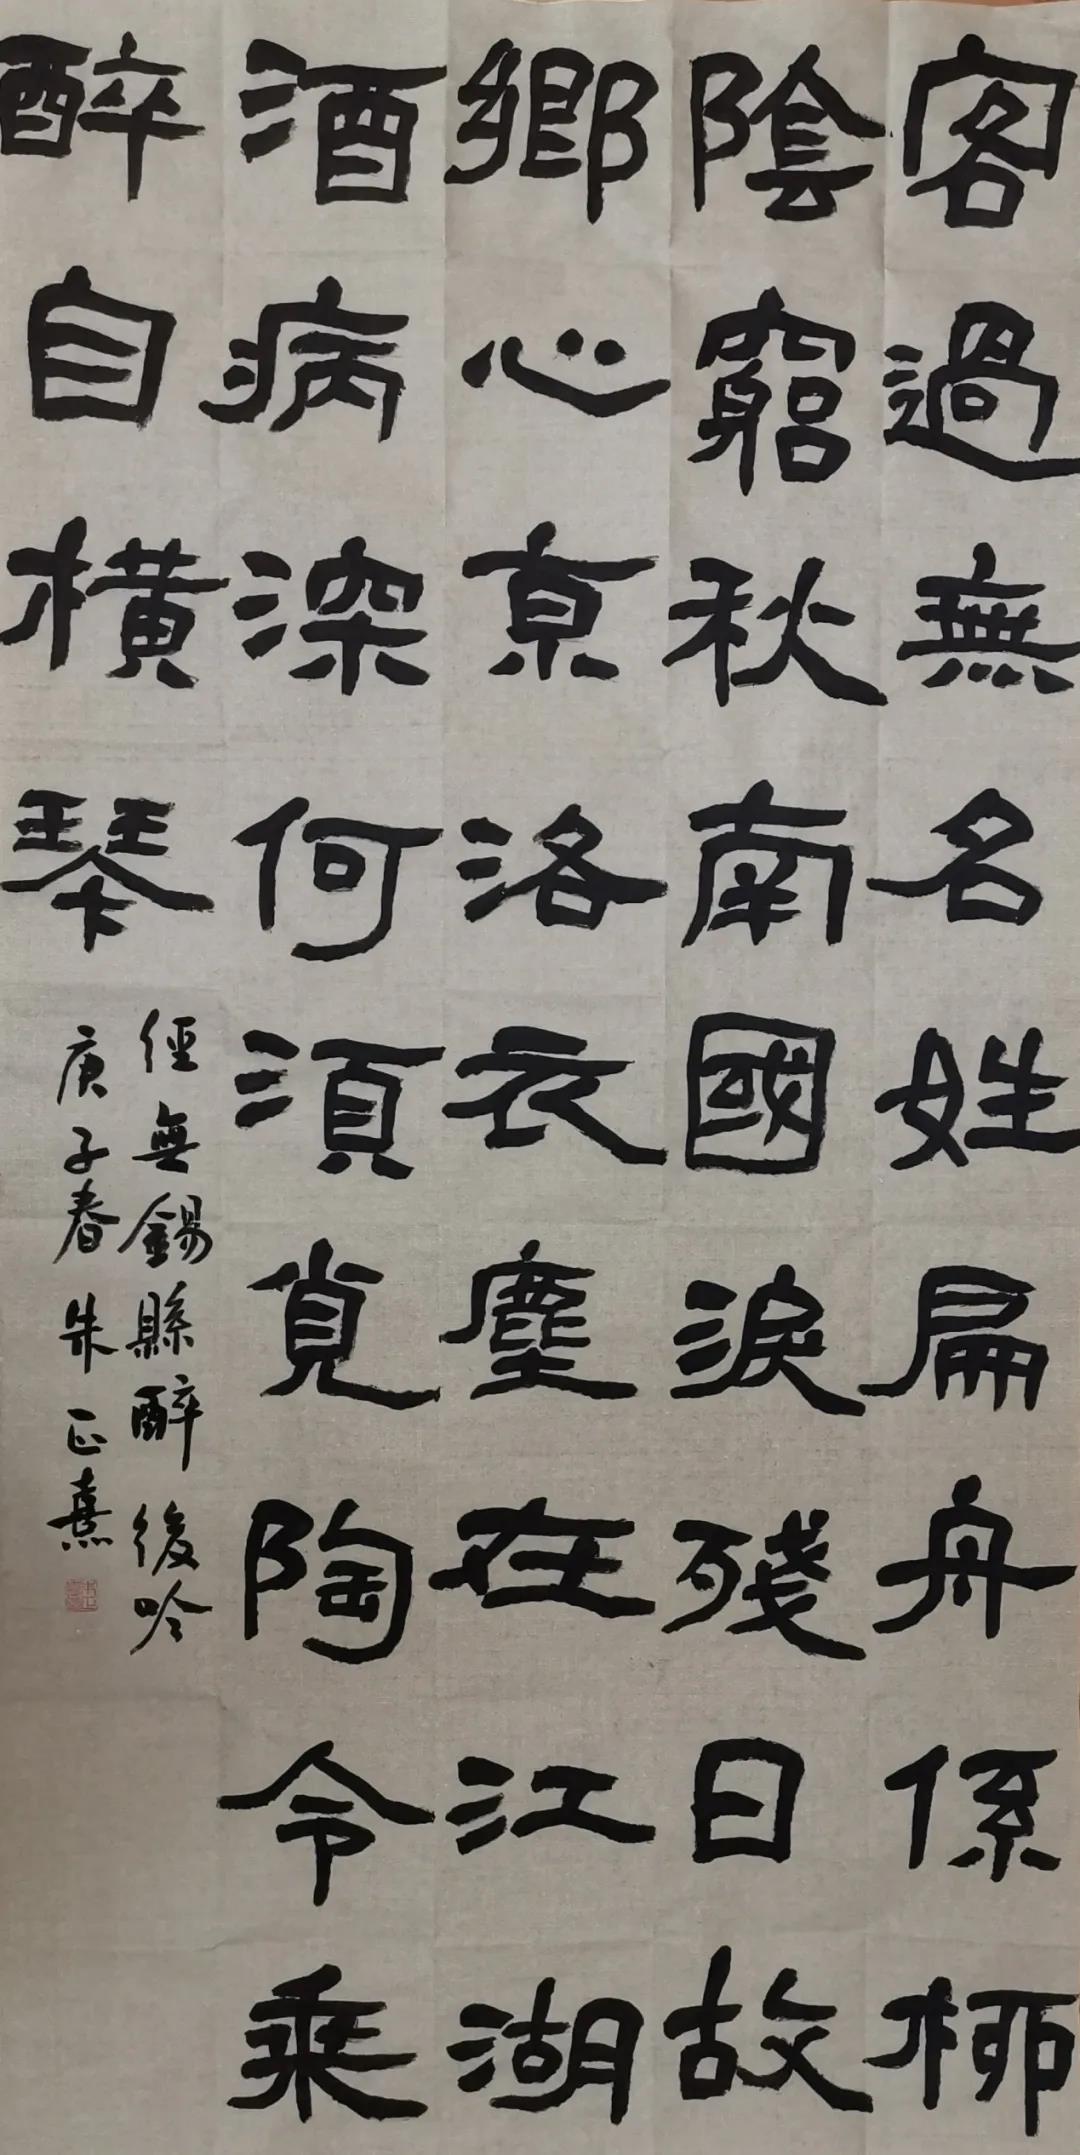 客過無名姓扁舟係柳
陰窮秋南國淚殘日故
鄉心京洛衣塵在江湖
酒病深何須覓陶令乘
醉自横琴
徑無錫縣醉後吟
庚子春朱正熹